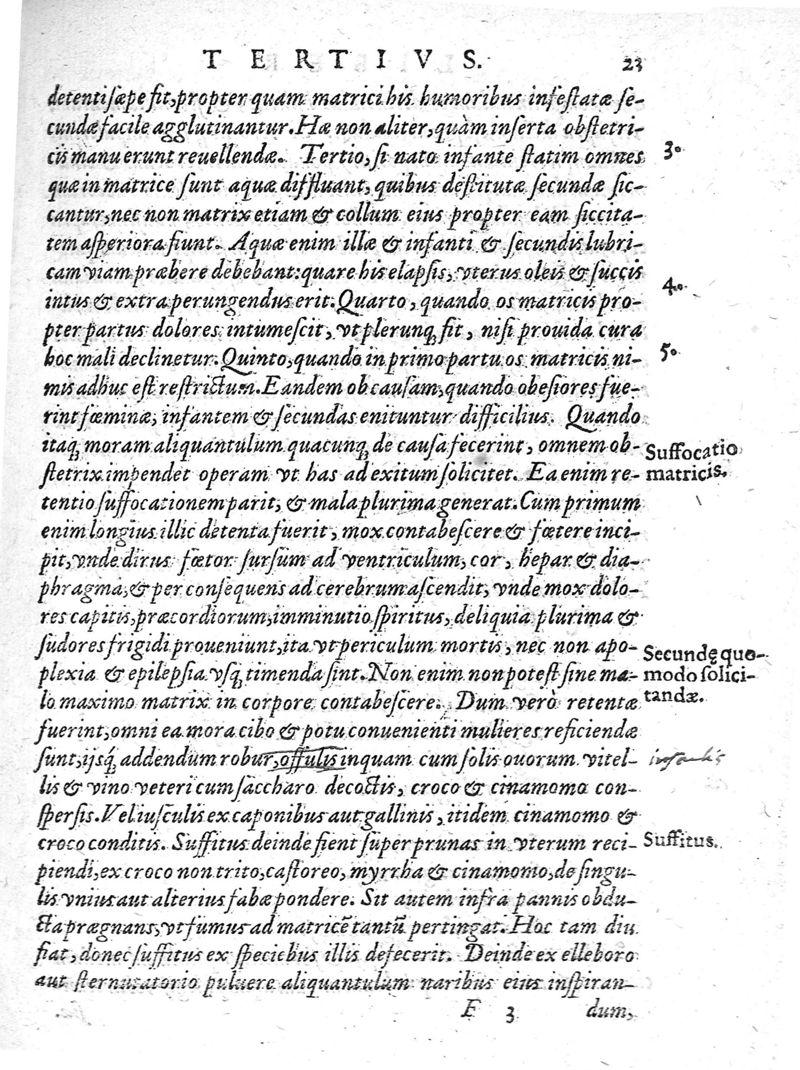 TERTIVS. 23
detenti sæpe fit, propter quam matrici his humoribus infestatæ se-
cundæ facile agglutinantur. Hæ non aliter, quàm inserta obstetri-
cis manu erunt reuellendæ. Tertio, si nato infante statim omnes
3.
quæ in matrice sunt aquæ diffluant, quibus destitutæ secundæ sic-
cantur, nec non matrix etiam & collum eius propter eam siccita-
tem asperiora fiunt. Aquæ enim illæ & infanti & secundis lubri-
cam viam præbere debebant: quare his elapsis, vterus oleis & succis
intus & extra perungendus erit. Quarto, quando os matricis pro-
4.
pter partus dolores intumescit, vt plerunq; fit, nisi prouida cura
hoc mali declinetur. Quinto, quando in primo partu os matricis ni-
5.
mis adhuc est restrictum. Eandem ob causam, quando obesiores fue-
rint fœminæ, infantem & secundas enituntur difficilius. Quando
itaq; moram aliquantulum quacunq; de causa fecerint, omnem ob-
Suffocatio
stetrix impendet operam vt has ad exitum solicitet. Ea enim re-
matricis.
tentio suffocationem parit, & mala plurima generat. Cum primum
enim longius illic detenta fuerit, mox contabescere & fœtere inci-
pit, vnde dirus fœtor sursùm ad ventriculum, cor, hepar & dia-
phragma, & per consequens ad cerebrum ascendit, vnde mox dolo-
res capitis, præcordiorum, imminutio spiritus, deliquia plurima &
sudores frigidi proueniunt, ita vt periculum mortis, nec non apo-
Secundę quo-
plexia & epilepsia vsq; timenda sint. Non enim non potest sine ma-
modo solici-
lo maximo matrix in corpore contabescere. Dum verò retentæ
tandæ.
fuerint, omni ea mora cibo & potu conuenienti mulieres reficiendæ
sunt, ijsq́; addendum robur, offulis inquam cum solis ouorum vitel-
lis & vino veteri cum saccharo decoctis, croco & cinamomo con-
spersis. Vel iusculis ex caponibus aut gallinis, itidem cinamomo &
croco conditis. Suffitus deinde fient super prunas in vterum reci-
Suffitus.
piendi, ex croco non trito, castoreo, myrrha & cinamomo, de singu-
lis vnius aut alterius fabæ pondere. Sit autem infra pannis obdu-
cta prægnans, vt fumus ad matricē tantū pertingat. Hoc tam diu
fiat, donec suffitus ex speciebus illis defecerit. Deinde ex elleboro
aut sternutatorio puluere aliquantulum naribus eius inspiran-
F 3 dum,